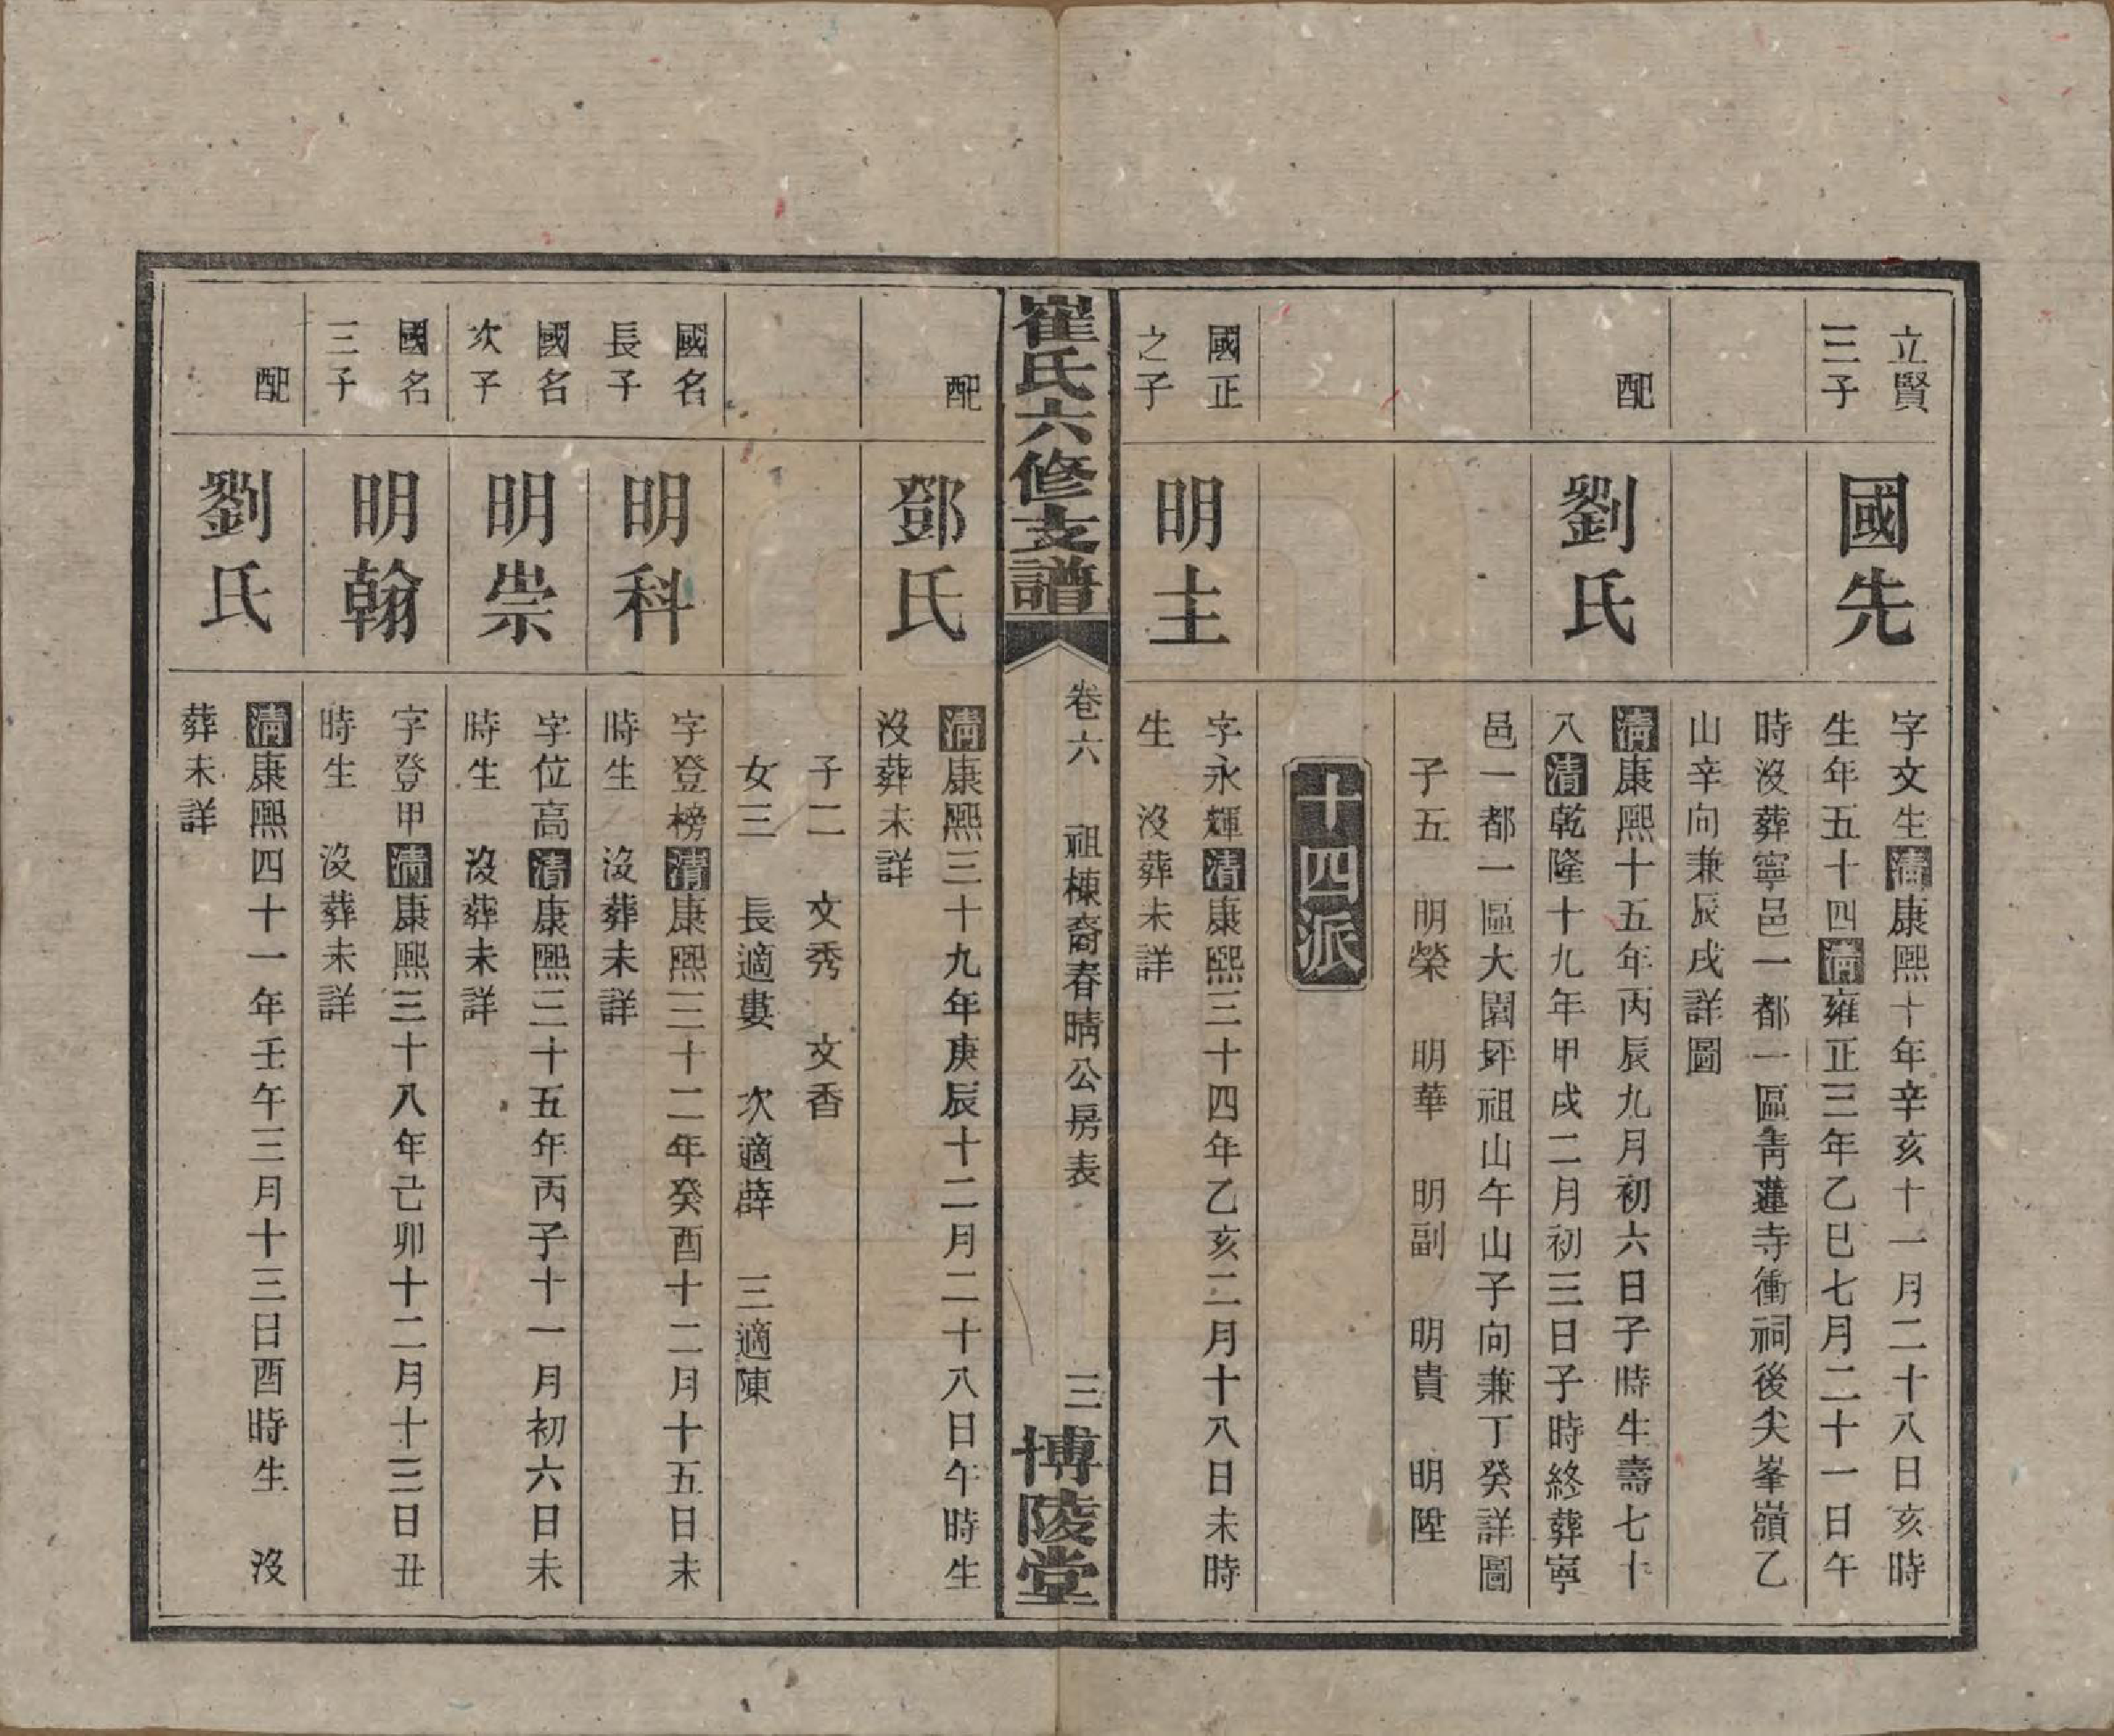 立賢
三子
國先
字文生清康熙十年辛亥十一月二十八日亥時
生年五十四清雍正三年乙巳七月二十一日午
時沒葬寧邑一都一區青蓮寺衝祠後尖峯嶺乙
山辛向兼辰戌詳圖
配
劉氏
清康熙十五年丙辰九月初六日子時生壽七十
八清乾隆十九年甲戌二月初三日子時終葬寧
邑一都一區大園坪祖山午山子向兼丁癸詳圖
子五 明榮 明華 明副 明貴 明陞
十四派
國正
之子
明主
字永輝清康熙三十四年乙亥二月十八日未時
生 沒葬未詳
崔氏六修支譜
卷六 祖棟裔春晴公房表
三
博陵堂
配
鄧氏
清康熙三十九年庚辰十二月二十八日午時生
沒葬未詳
子二 文秀 文香
女三 長適婁 次適薛 三適陳
國名
長子
明科
字登榜清康熙三十二年癸酉十二月十五日未
時生 沒葬未詳
國名
次子
明崇
字位高清康熙三十五年丙子十一月初六日未
時生 沒葬未詳
國名
三子
明翰
字登甲清康熙三十八年己卯十二月十三日丑
時生 沒葬未詳
配
劉氏
清康熙四十一年壬午三月十三日酉時生 沒
葬未詳